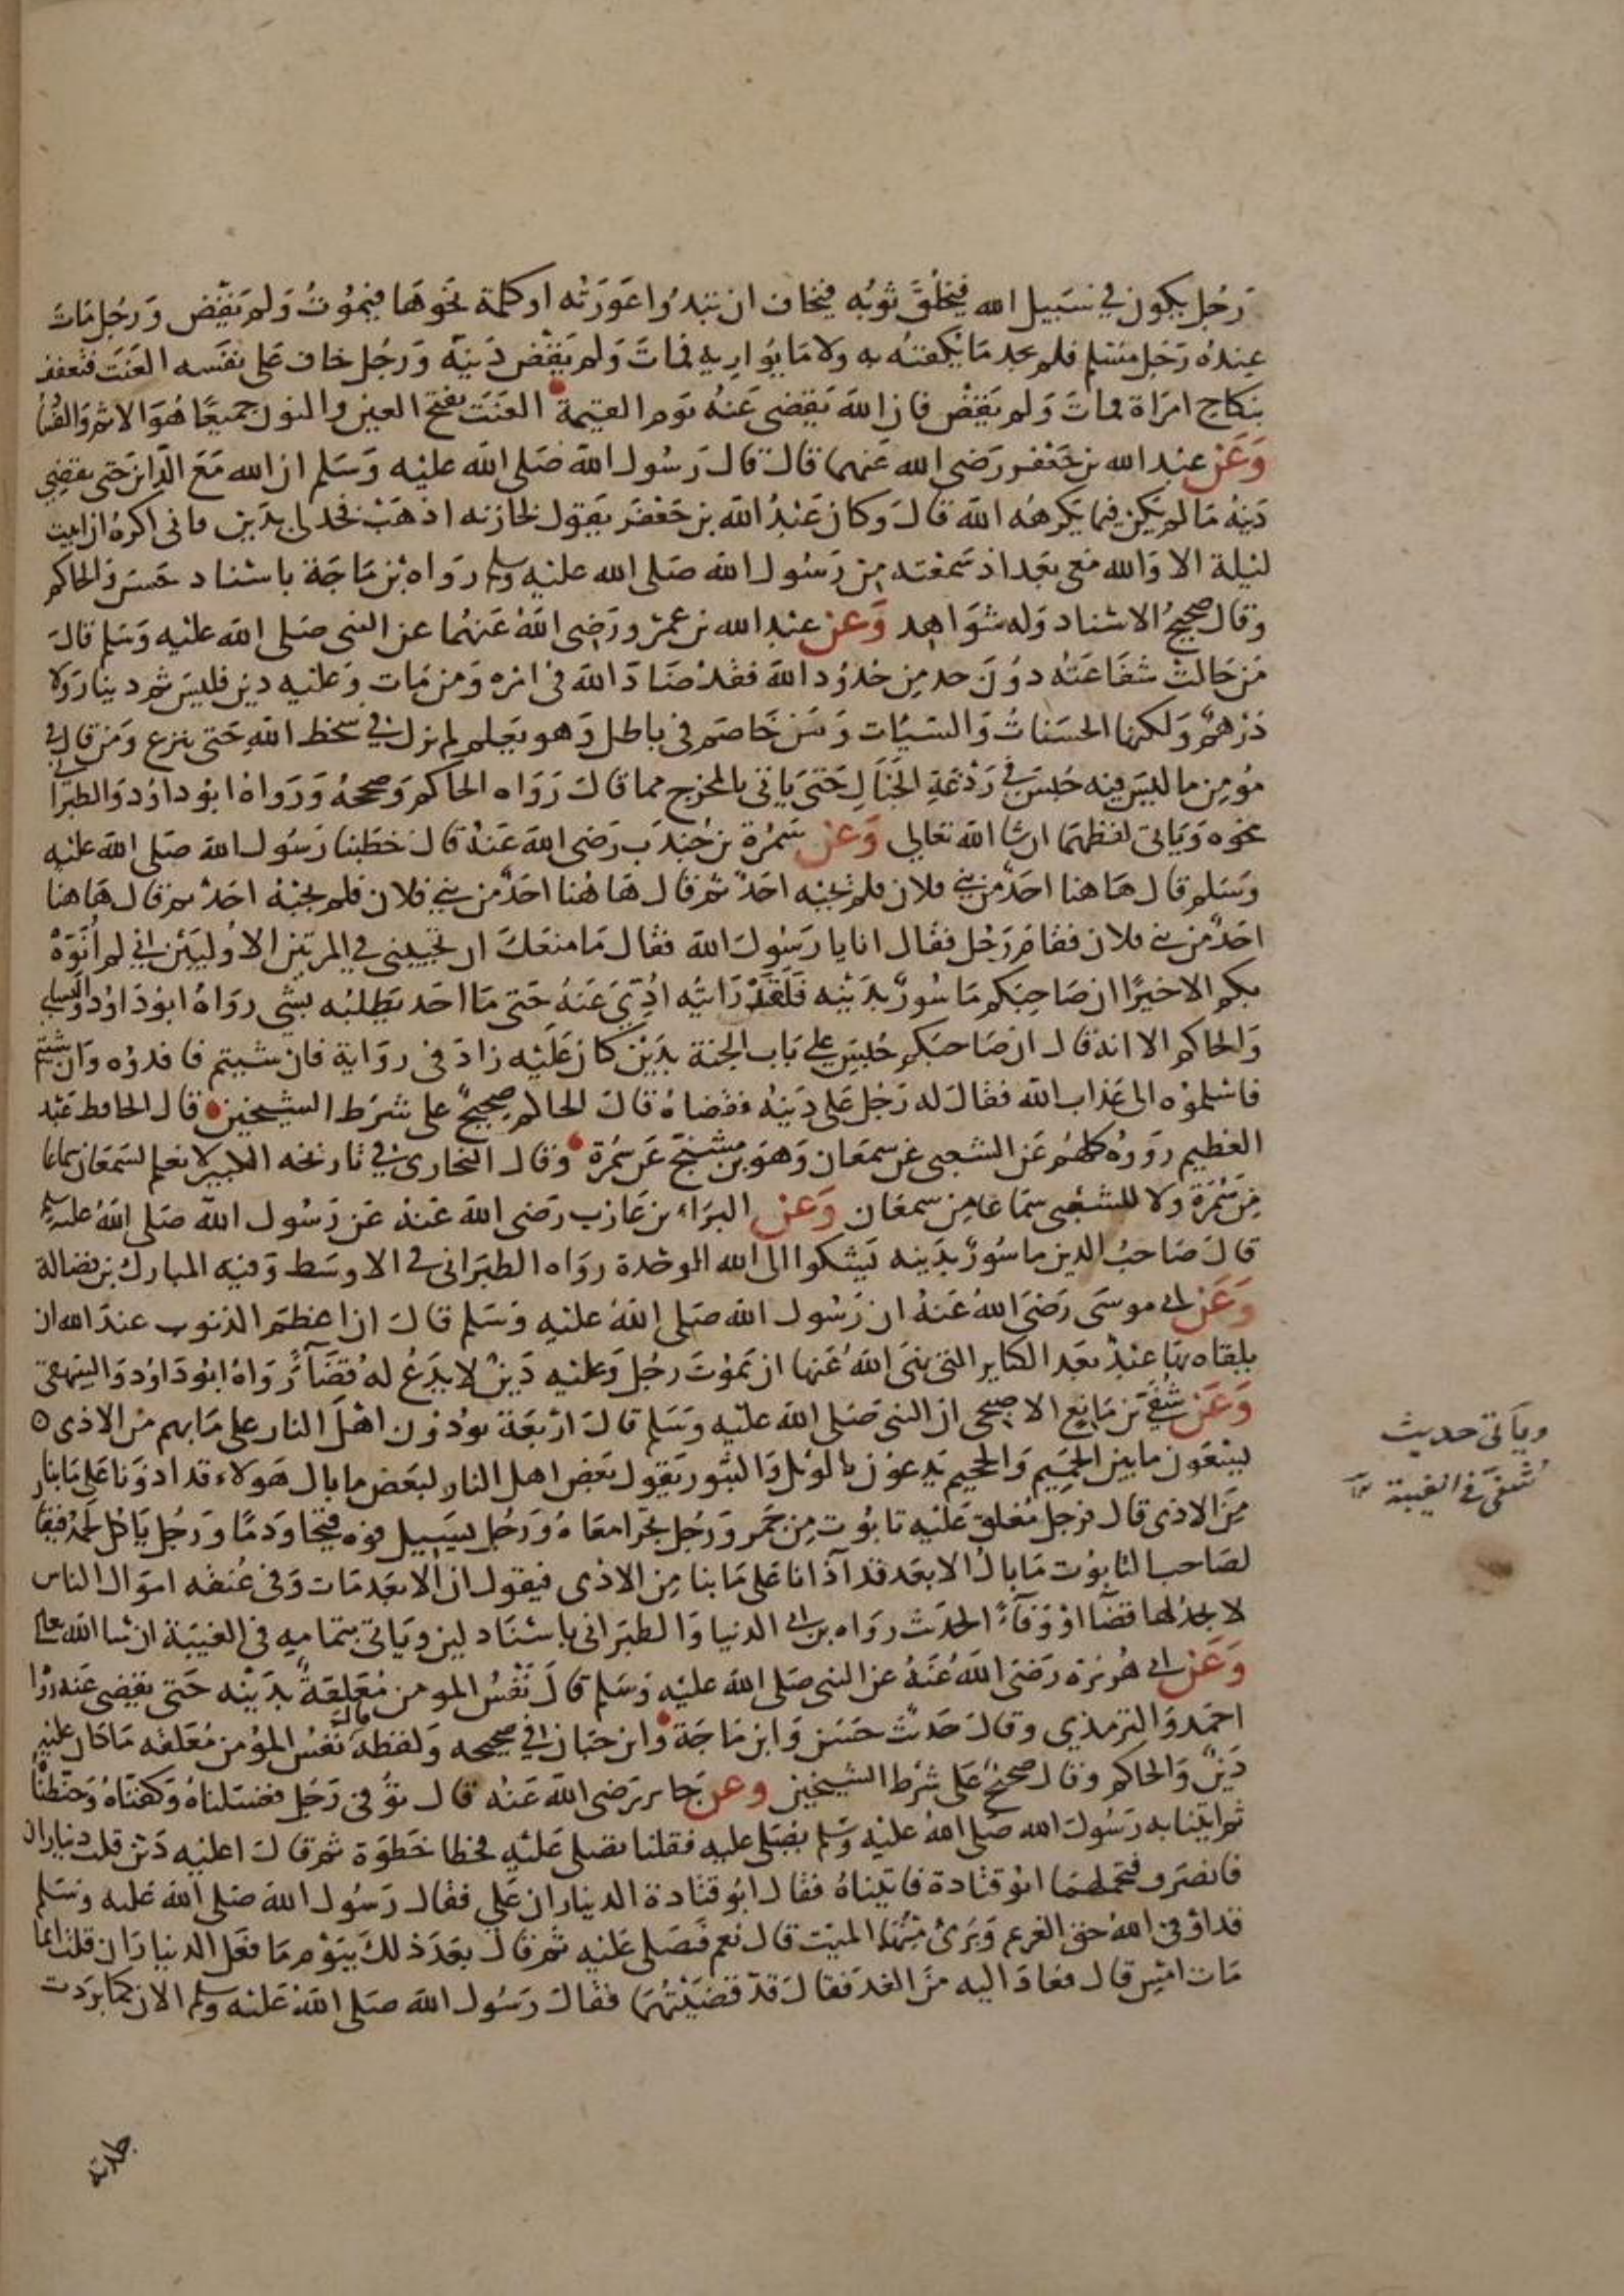 رَجُل يكون في سَبيل الله فيَخْلَق ثوبُه فيخاف ان تبدُوا عَورَته او كلمة نحوَها فيَموُتُ وَلم يَقضِ وَرجُل مَاتَ
عندهُ رَجُل مُسْلم فلم يجد مَا يكفنُه به ولا مَا يُواريه فماتَ وَلم يَقْضِ دَينَه وَرجُل خاف عَلى نفسه العَنَت فتعفف
بنكاح امرَاة فمات وَلم يَقضْ فان اللهَ يَقضي عَنهُ يوم القيمة العَنَت بفتح العين والنون جميعًا هُوَ الاثم وَالفسا
وَعَن عَبد الله بن جَعْفر رَضي الله عَنهما قال قالَ رَسُول الله صَلى الله عليه وَسَلم ان الله مَعَ الدَّاين حَتى يقضِي
دَينهُ مَا لم يَكن فيما يكرهُه الله قالَ وَكان عَبْدُ الله بن جَعْفَر يَقول لخازنه اذهَبْ فخد لي بدَين فاني اكرهُ ان ابيت
ليلة الا وَالله مَعي بَعد اذ سَمعته من رَسُول الله صَلى الله عليه وسلم رَواه بْن مَاجَة باسْناد حَسَن وَالحاكم
وقال صحيحُ الاسْناد وَله شوَاهد وَعن عبد الله بن عَمْرو رَضي اللهُ عَنهُما عن النبي صَلى الله عليه وَسَلم قالَ
مَن حَالت شفَاعَتُه دوُنَ حد مِن حُدوُد الله فقدْ ضَادَّ اللهَ في امره وَمن مَات وَعليه دين فليسَ ثم دينار وَلا
دِرْهمٌ وَلكنها الحسَناتُ وَالسّيئات وَمَن خَاصَم في باطل وَهو يَعلم لم يزل في سخط اللهِ حَتى ينزع وَمَن قالَ في
مُؤمِن ما ليسَ فيه حُبسَ في رَدْغَةِ الخَبَالِ حَتى يَاتي بالمخرج مما قالَ رَوَاه الحاكم وَصححهُ وَرَوَاهُ ابو داوُد وَالطبرَاني
نحوه وَيَاتي لفظهمَا ان شا الله تعَالى وَعَن سَمُرَة بن جُندَب رَضي اللهَ عَنهُ قالَ خطَبنا رَسُول الله صَلى الله عليه
وَسَلم قال هَاهنا احَدٌ من بني فلان فلم يُجبه احَدٌ ثم قال هَا هُنا احَدٌ من بني فلان فلم يجبْهُ احَدْ ثم قال هَا هنا
احَدٌ من بني فلان فقامَ رَجُل فقال انا يا رَسُولَ الله فقال مَا منعَكَ ان تجيبني في المرتين الاوُليَيْن اني لم اُنَوّهْ
بكم الا خيرًا ان صَاحبكم مَاسُورٌ بدَيْنه فَلَقَدْ رَايتُه اُدِّيَ عَنهُ حَتى مَا احَد يَطلبُه بشي رواهُ ابو دَاوُد وَالنسائي
وَالحاكم الا انه قال ان صَاحبكم حُبِسَ على بَاب الجنة بدَيْن كان عَلَيْه زادَ في روَاية فان شيتم فافدوُه وَان شيتم
فاسْلموُه الى عَذاب الله فقالَ له رَجُل عَلي دَينهُ فقضاهُ قالَ الحاكم صحيحٌ على شرَط الشيخين قال الحافظ عَبْد
العظيم رَووهُ كلهُم عَن الشعبي عن سمعَان وَهوَ بن مشَنَّج عَن سَمُرَة وَقال البخاري في تاريخه الكبير لا نعلم لسَمعَان سَماعا
مِن سَمُرَة وَلا للشعْبي سَمَاعا مِن سمعَان وَعَن البرَاء بن عَازب رَضي الله عَنهُ عَن رَسُول الله صَلى اللهُ عليه وسلم
قالَ صَاحبُ الدين مَاسُورٌ بدَينه يَشكوا الى الله الوحْدة رواه الطبَرَاني في الاوسَط وَفيه المبارك بن فضالة
وَعَن ابي موسَى رَضيَ اللهُ عَنهُ ان رَسُول الله صَلى اللهُ عليه وَسَلم قالَ ان اعظمَ الذنوب عندَ الله ان
يلقاه بهَا عَبْدٌ بَعد الكباير التي نهَى اللهُ عَنها ان يَموُت رجُل وَعليه دَينٌ لا يَدَعُ لهُ قضَآءً رَوَاهُ ابوُ دَاوُد وَالبيهقي
وَعَن شُفَيّ بن مَاتع الاصبحى ان النبي صَلى الله عليْه وَسَلم قالَ ارْبعَة يوذون اهْلَ النار على مَا بهم من الاذى ٥
يسْعَون ما بين الحَميم وَالجحيم يَدعون بالويْل وَالثبور يَقول بَعض اهل النار لبَعض ما بال هَولاء قد اذوَنا عَلى مَا بنا
مِنَ الاذى قال فرجل مُغلق عَلَيْه تابُوت مِن جمر وَرَجُل يجرّ امعَاهُ وَرَجُل يسيل فوه قيحًا وَدَمًا وَرَجُل يَاكل لحمَهُ فيقا
لصَاحب التابوُت مَا بالُ الابعَد قد آذانا عَلى مَا بنا مِن الاذى فيقول ان الابعَد مَات وَفي عُنقه اموَال الناس
لا يجدُ لها قضآًا اوْ وَفآءً الحدَيث رواه بن ابي الدنيا وَالطبرَاني باسْناد لين وَيَاتي بتمامِه في الغيبَة ان شا الله تعالى
وَعَن ابي هُريْرَة رَضيَ اللهُ عَنهُ عَن النبي صَلى اللهَ عليه وَسَلم قالَ نَفْسُ المومن مُعَلقةٌ بدَينْه حَتى يقضى عَنه رَوَا
احمَد وَالترمذي وَقالَ حَديثٌ حَسَن وَابن مَاجَة وَابن حبَان في صحيحه وَلفظه قال نفسُ المُؤمن مُعَلقه مَا كان عليه
دَينٌ وَالحاكم وَقال صحيحٌ عَلى شرْط الشيخين وعن جَابر رَضي الله عَنهُ قال توُفي رَجُل فغسَلناهُ وَكفنّاهُ وَحَنّطْنَا
ثم اتينا به رَسُولَ الله صَلى اللهُ عليْه وَسَلم يصَلي عليه فقلنا تصَلي عَلَيْهِ فخطا خَطوَة ثم قالَ اعليه دَيْن قلت ديناران
فانصَرَف فتحملهُمَا ابوُ قتادة فاتيناهُ فقال ابُو قتادة الديناران عَلي فقال رَسُول اللهَ صَلى الله عَليه وسَلم
قد اوْفى اللهُ حقَّ الغريم وَبَرئ مِنْهُما الميت قال نعم فَصَلى عَليه ثم قالَ بعَدَ ذلكَ بيَوْم مَا فعَل الدنيارَان قلت انما
مَات امسِ قال فعَادَ اليه منَ الغد فقال قدْ قَضَيْتُهمَا فقالَ رَسُول الله صَلى اللهُ عَليه وسلم الان كما برَدت
وياتي حديث
شُفَيّ في الغيبة
جلدته